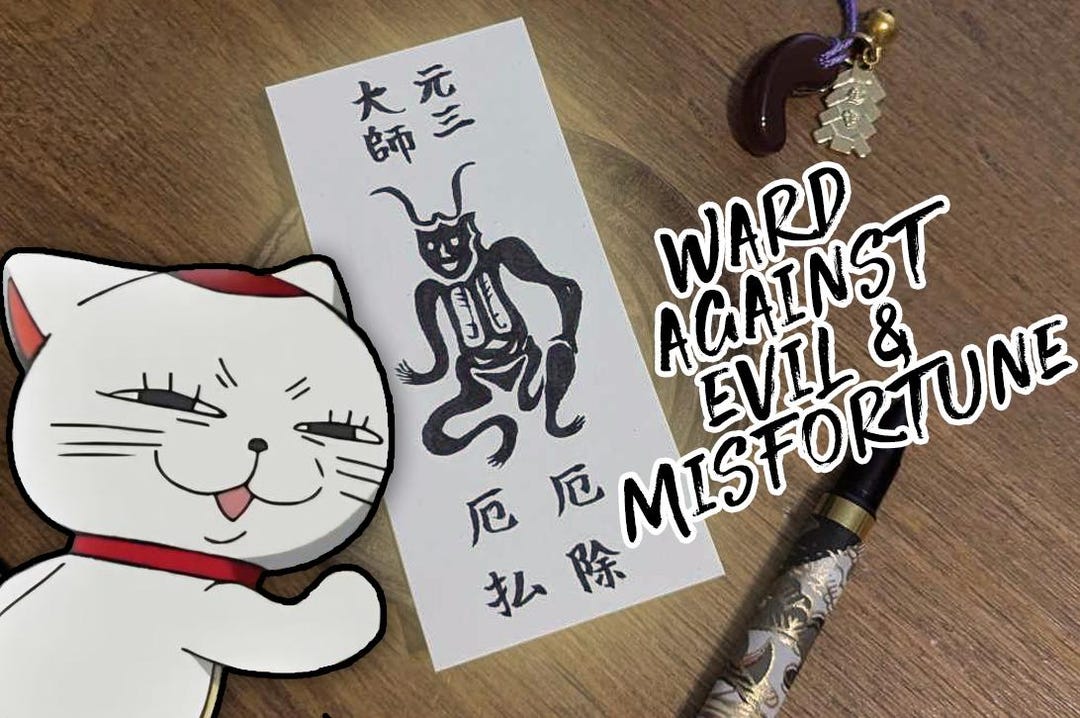 元三
大師
厄除
厄払
WARD
AGAINST
EVIL &
MISFORTUNE